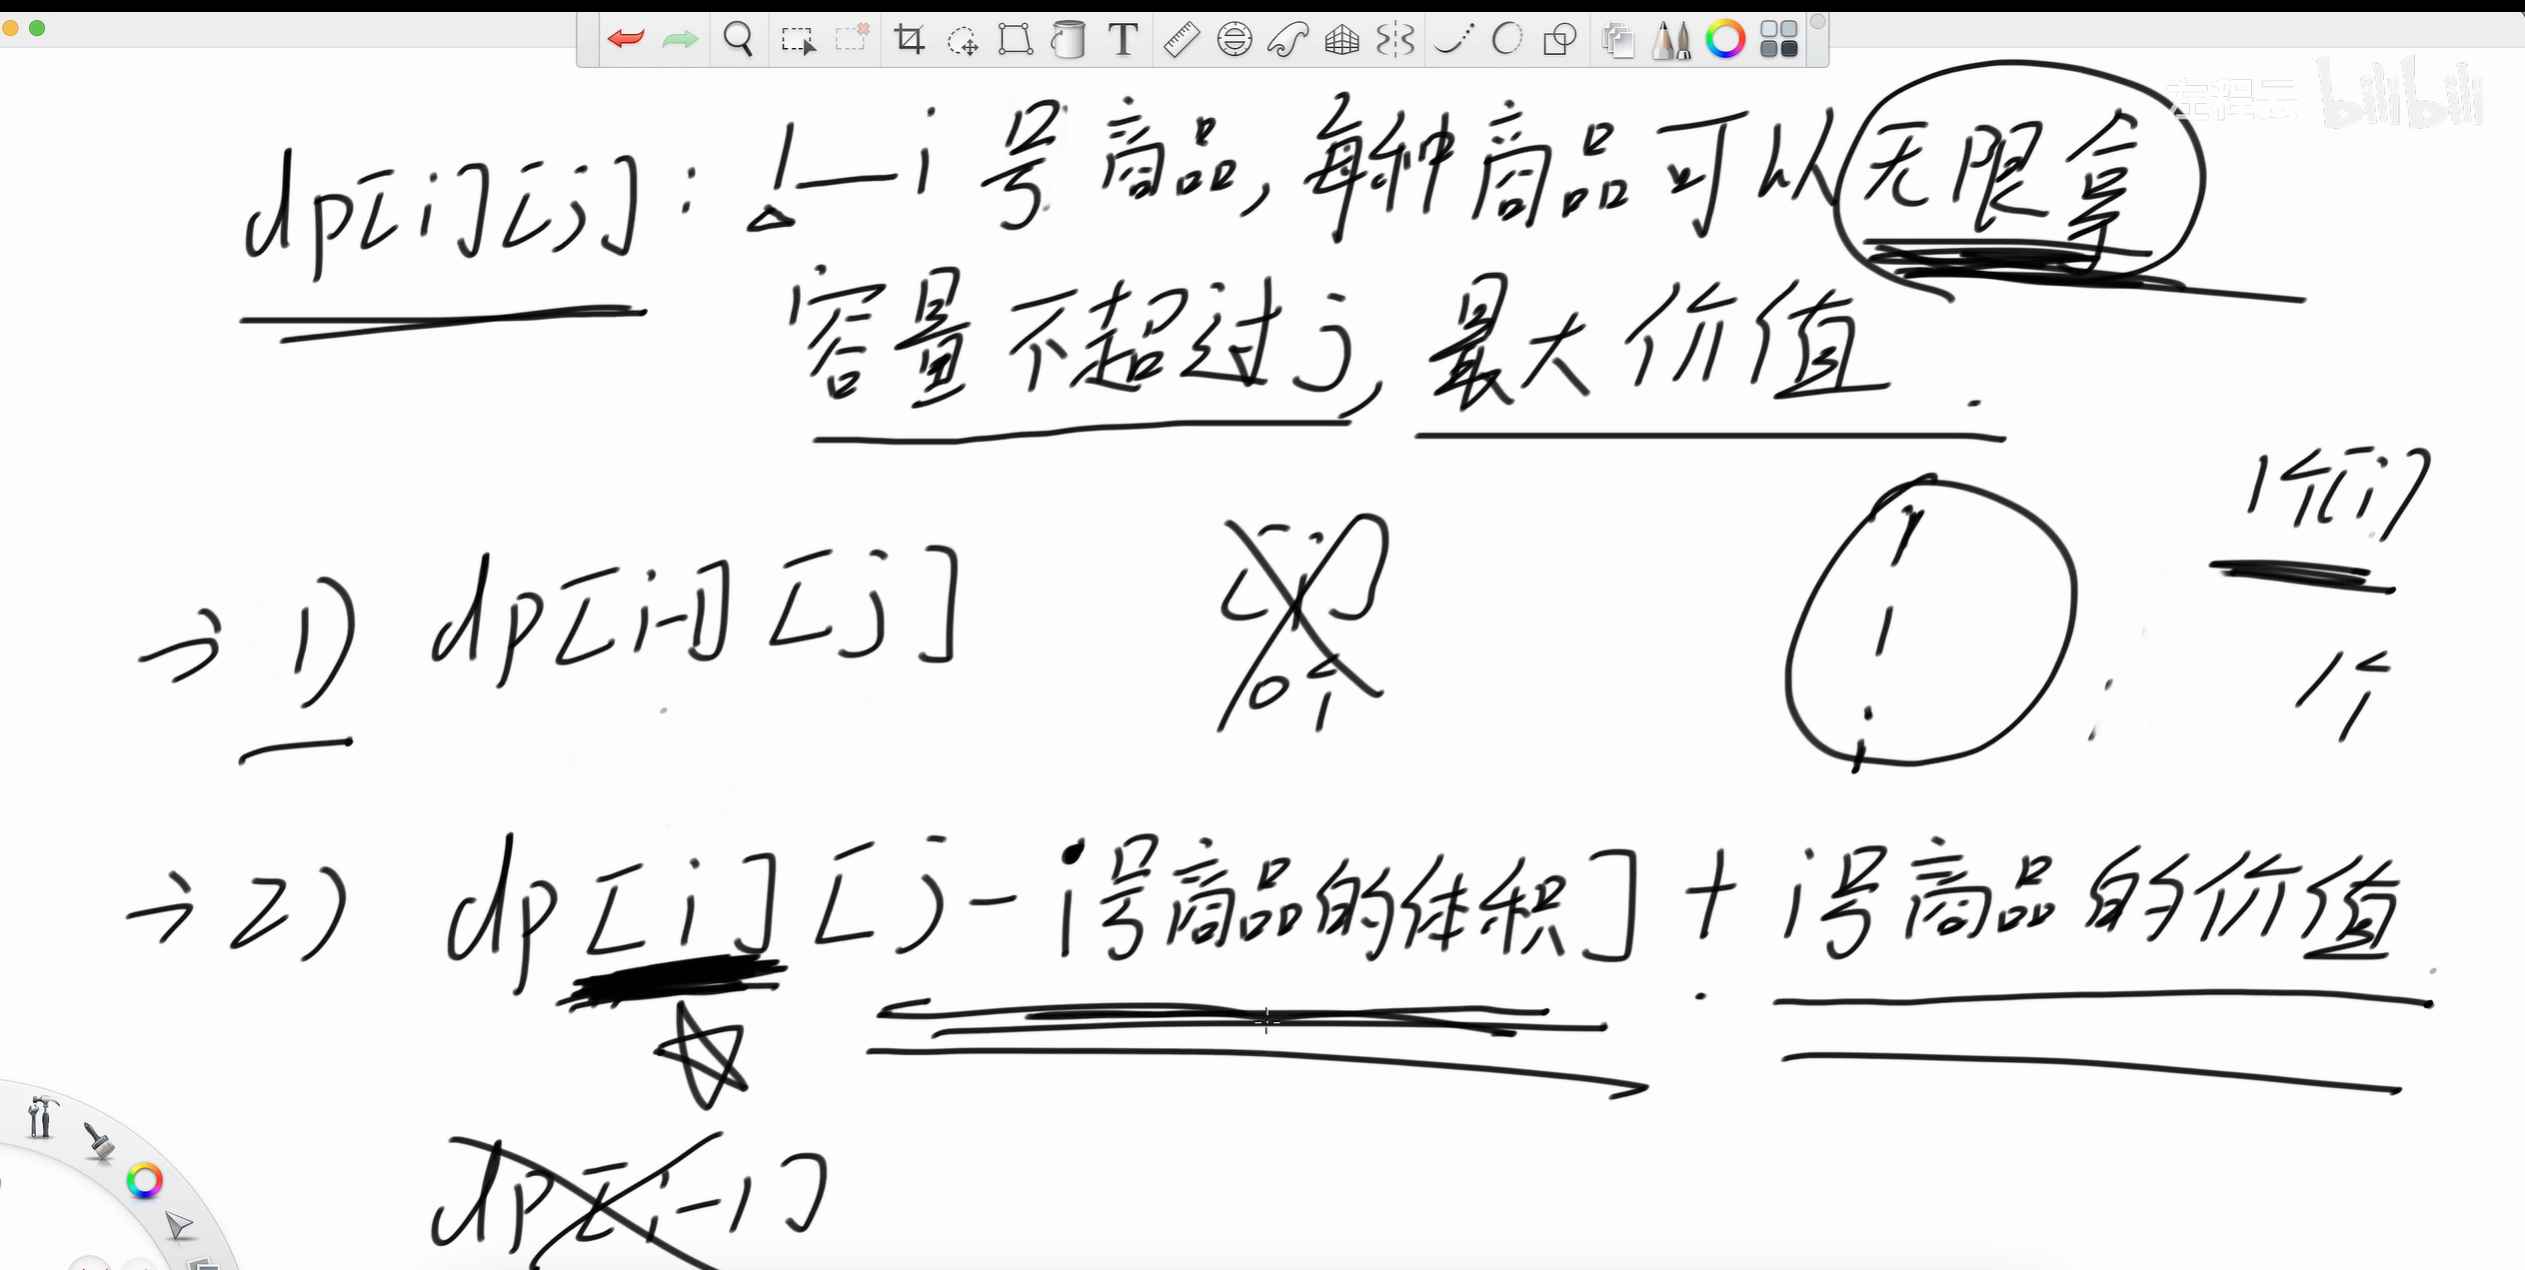 左程云 bilibili
dp[i][j]: 1—i号商品,每种商品可以无限拿
容量不超过j,最大价值.
1个[i]
→ 1) dp[i-1][j]
[i]
0个
1个
→ 2) dp[i][j-i号商品的体积] + i号商品的价值.
dp[i-1]